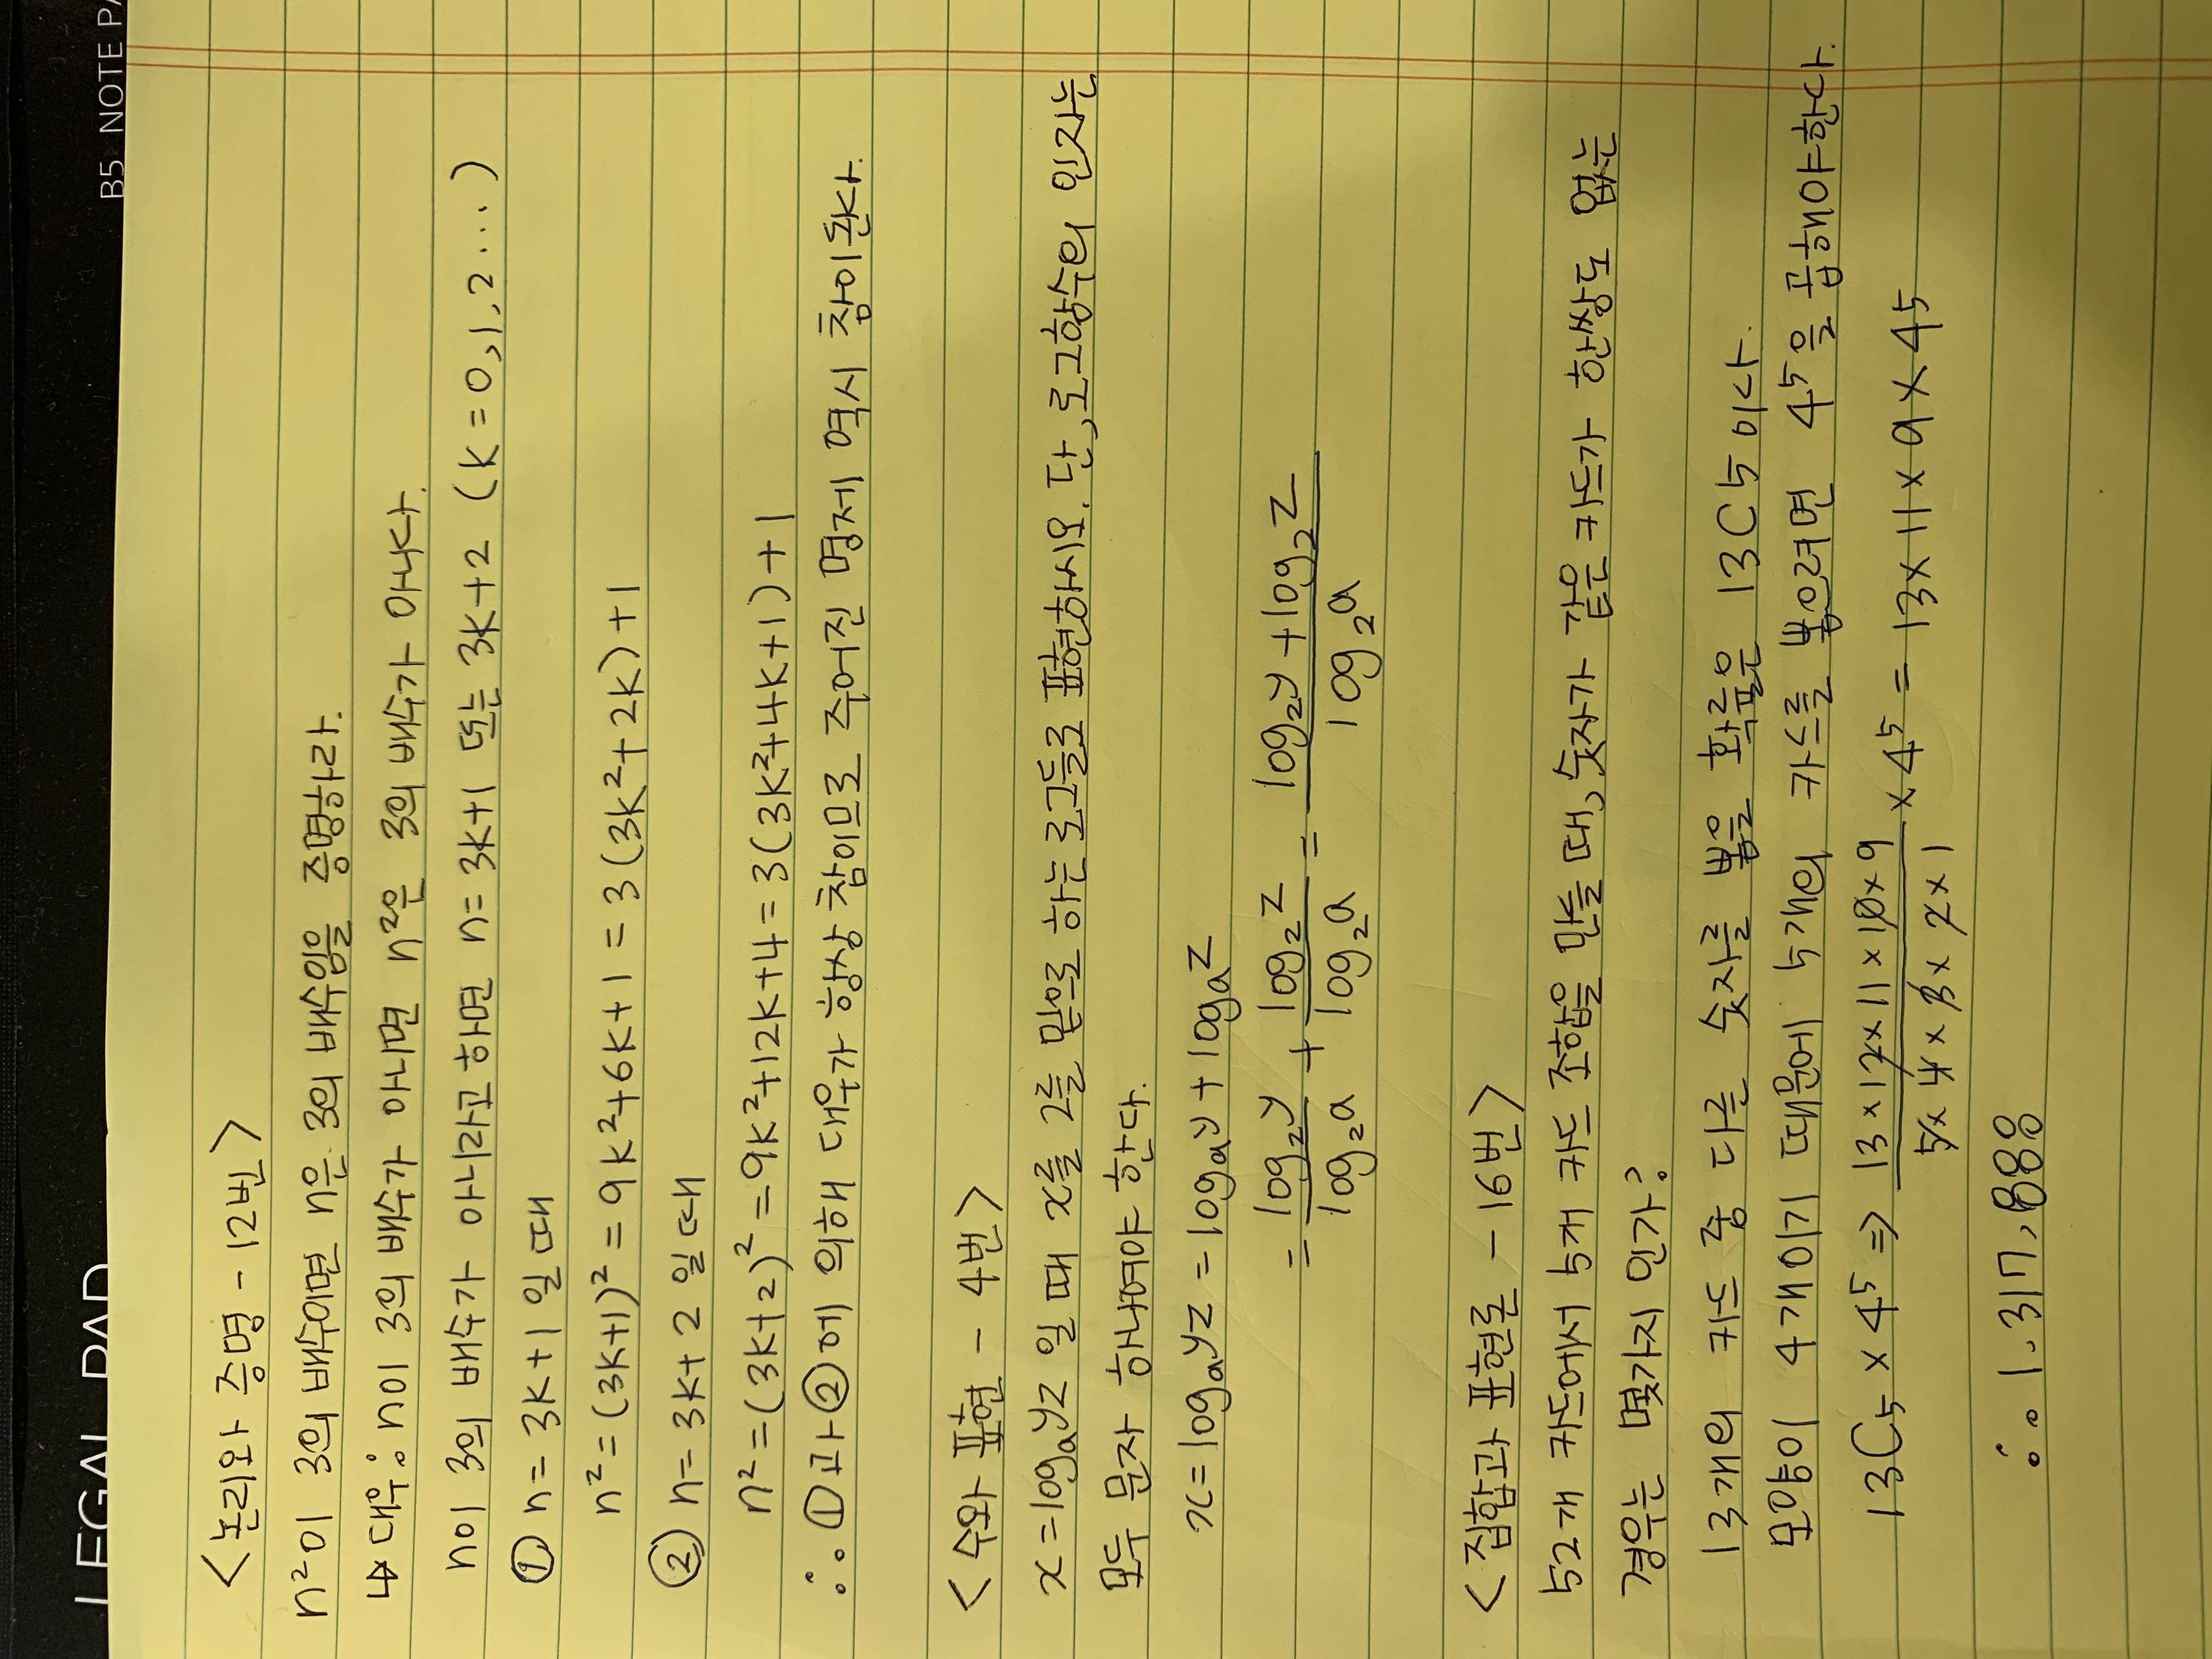 LEGAL PAD
B5 NOTE PA
<논리와 증명 - 12번>
n²이 3의 배수이면 n은 3의 배수임을 증명하라.
↳ 대우 : n이 3의 배수가 아니면 n²은 3의 배수가 아니다.
n이 3의 배수가 아니라고 하면 n = 3k+1 또는 3k+2 (k = 0, 1, 2 ...)
① n = 3k+1 일 때
n² = (3k+1)² = 9k²+6k+1 = 3(3k²+2k)+1
② n = 3k+2 일 때
n² = (3k+2)² = 9k²+12k+4 = 3(3k²+4k+1)+1
∴ ①과 ②에 의해 대우가 항상 참이므로 주어진 명제 역시 참이 된다.
<수와 표현 - 4번>
x = logₐyz 일 때 x를 2를 밑으로 하는 로그들로 표현하시오. 단, 로그함수의 인자는
모두 문자 하나여야 한다.
x = logₐyz = logₐy + logₐz
= log₂y/log₂a + log₂z/log₂a = (log₂y + log₂z)/log₂a
<집합과 표현론 - 16번>
52개 카드에서 5개 카드 조합을 만들 때, 숫자가 같은 카드가 한쌍도 없는
경우는 몇가지 인가?
13개의 카드 중 다른 숫자를 뽑을 확률은 13C5 이다.
모양이 4개이기 때문에 5개의 카드를 뽑으려면 4⁵을 곱해야한다.
13C₅ × 4⁵ ⇒ (13 × 12 × 11 × 10 × 9)/(5 × 4 × 3 × 2 × 1) × 4⁵ = 13 × 11 × 9 × 45
∴ 1,317,888